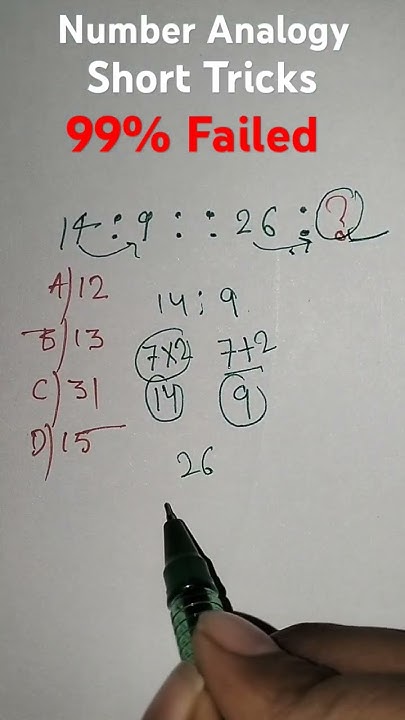 Number Analogy
Short Tricks
99% Failed
14 : 9 : : 26 : ?
A) 12
B) 13
C) 31
D) 15
14 : 9
7×2 7+2
14 9
26